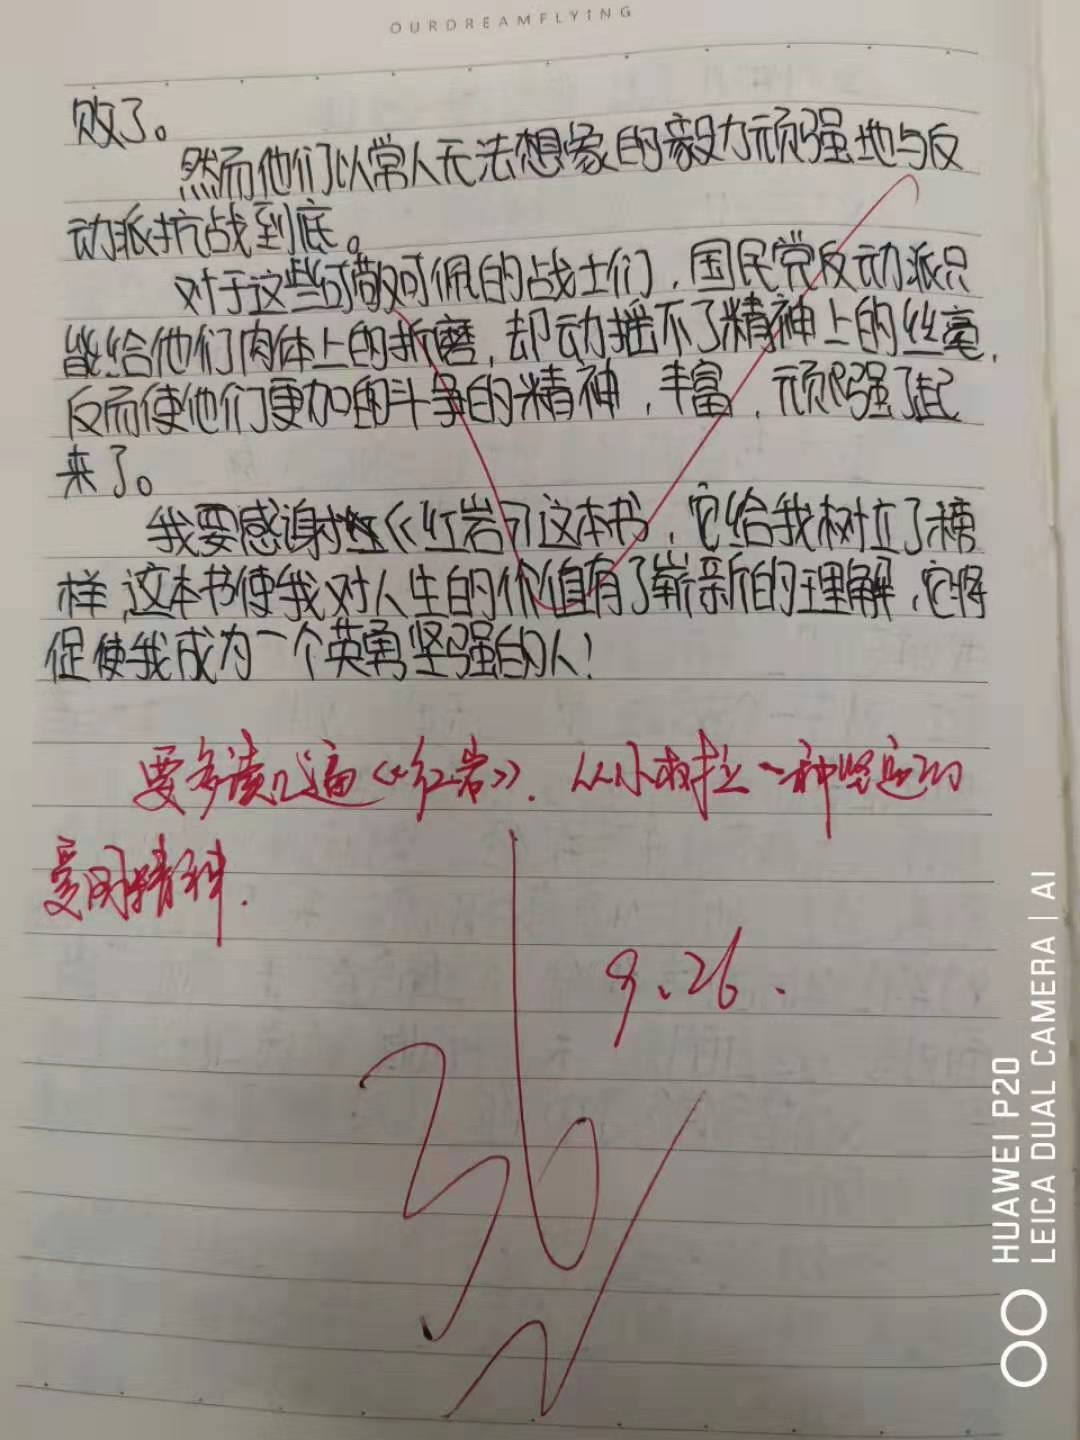 OURDREAMFLYING
败了。
然而他们以常人无法想象的毅力顽强地与反
动派抗战到底。
对于这些可敬可佩的战士们，国民党反动派只
能给他们肉体上的折磨，却动摇不了精神上的丝毫，
反而使他们更加的斗争的精神，丰富，顽强了起
来了。
我要感谢《红岩》这本书，它给我树立了榜
样，这本书使我对人生的价值有了崭新的理解，它将
促使我成为一个英勇坚强的人！
要多读几遍《红岩》．从小树立一种坚定的
爱国精神．
9.26.
HUAWEI P20
LEICA DUAL CAMERA | AI